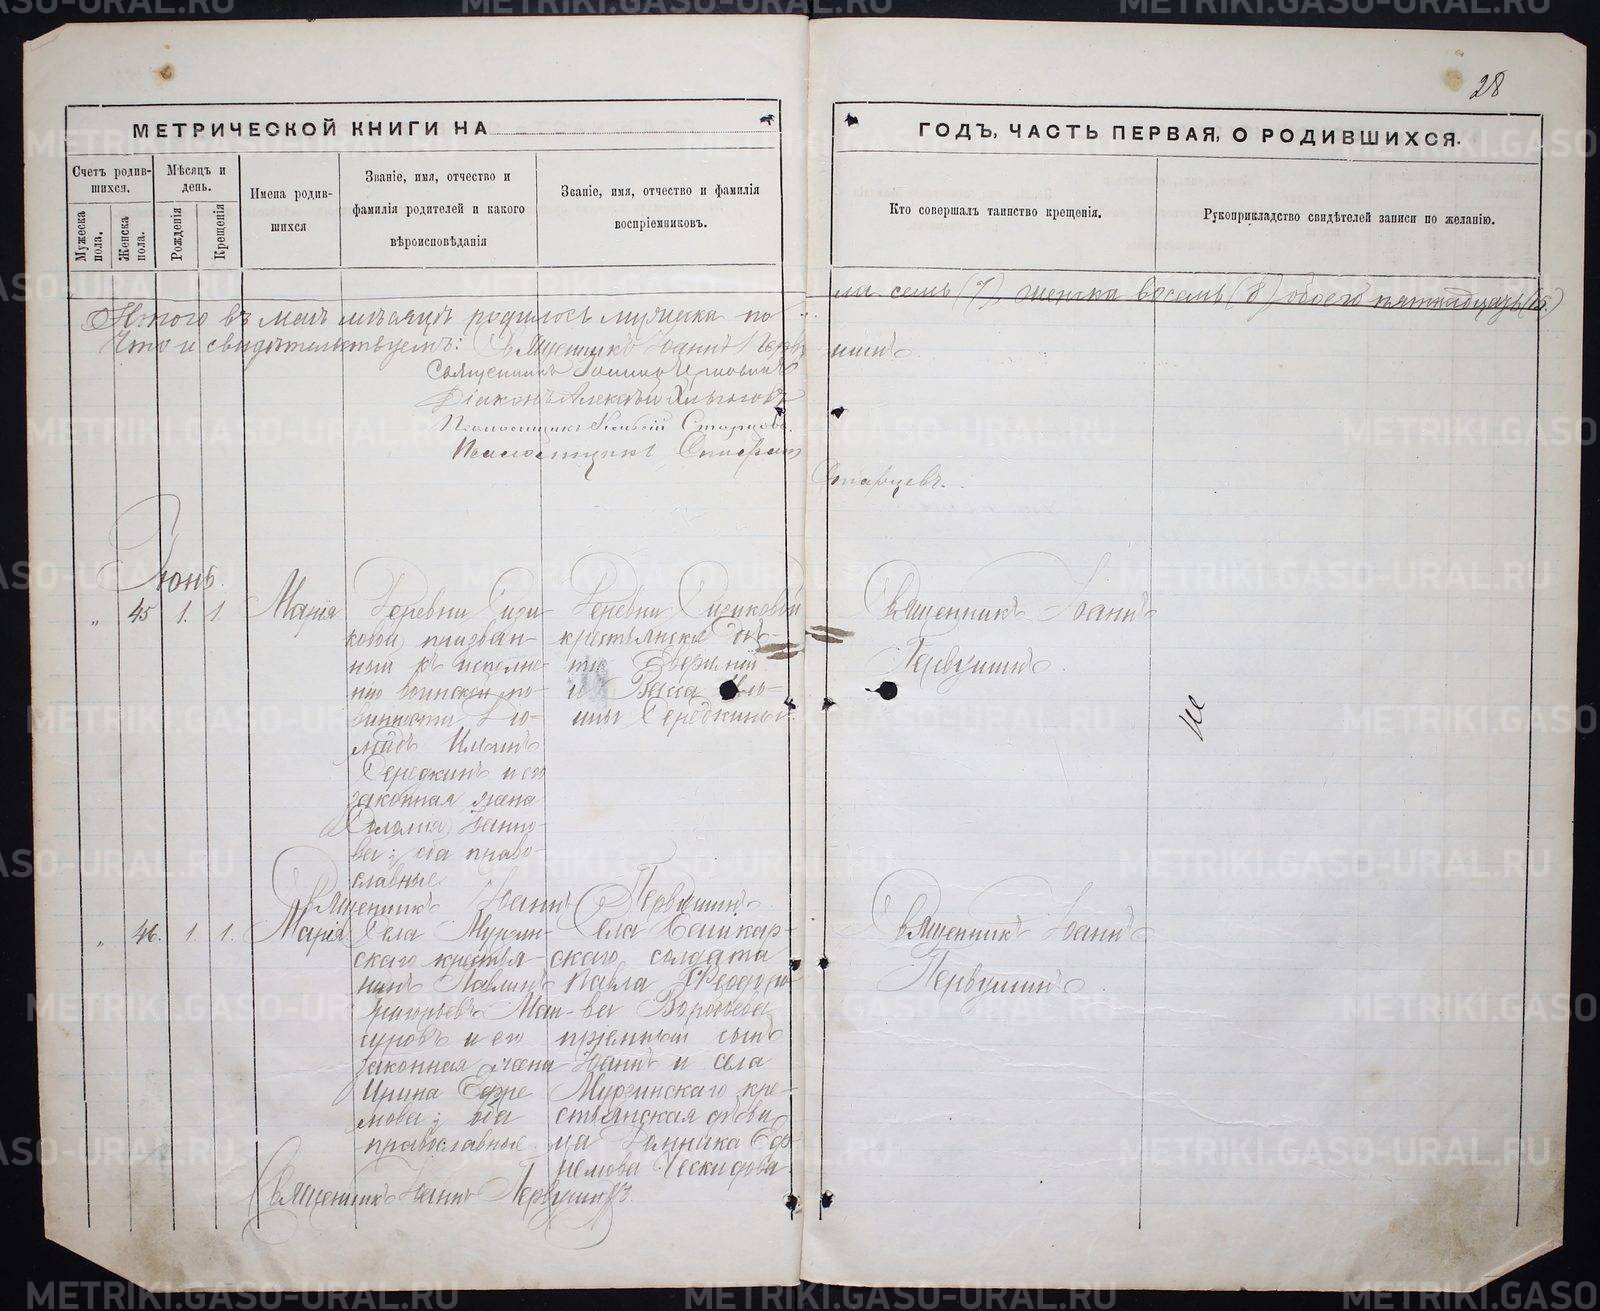 28
МЕТРИЧЕСКОЙ КНИГИ НА
ГОДЪ, ЧАСТЬ ПЕРВАЯ, О РОДИВШИХСЯ.
Счетъ родив-
шихся.
Мужеска
пола.
Женска
пола.
Мѣсяцъ и
день.
Рожденія
Крещенія
Имена родив-
шихся
Званіе, имя, отчество и
фамилія родителей и какого
вѣроисповѣданія
Званіе, имя, отчество и фамилія
воспріемниковъ.
Кто совершалъ таинство крещенія.
Рукоприкладство свидѣтелей записи по желанію.
Итого въ маѣ мѣсяцѣ родилось мужеска по
ла семь (7), женска восемь (8) обоего пятнадцать (15.)
Что и свидѣтельствуемъ: Священникъ Іоаннъ Перву
шинъ
Священникъ Іоаннъ
Діаконъ Алексѣй
Псаломщикъ Старцевъ.
Псаломщикъ
Старцевъ.
Іюнь.
„ 45 1. 1 Марія
Деревни Сизи-
ковой призван-
ный къ исполне-
нію воинской по-
винности Дio-
мидъ Ильинъ
Середкинъ и его
законная жена
Соломія Іоанно-
ва; оба право-
славные.
Деревни Сизиковой
крестьянскія дѣ-
ти
и Васса Иль-
ины Середкины.
Священникъ Іоаннъ
Первушинъ
не
Священникъ Іоаннъ Первушинъ.
„ 46. 1. 1. Марія
Села Мурзин-
скаго крестья-
нинъ Павлинъ
Григорьевъ Ман-
суровъ и его
законная жена
Ирина Ефре-
мова; оба
православные.
Села Башкар-
скаго солдата
Павла Ѳеодоро-
ва Воробьева
пріемный сынъ
Іоаннъ и села
Мурзинскаго кре-
стьянская дѣви-
ца Еф-
ремова Ческидова
Священникъ Іоаннъ
Первушинъ
Священникъ Іоаннъ Первушинъ.
METRIKI.GASO-URAL.RU